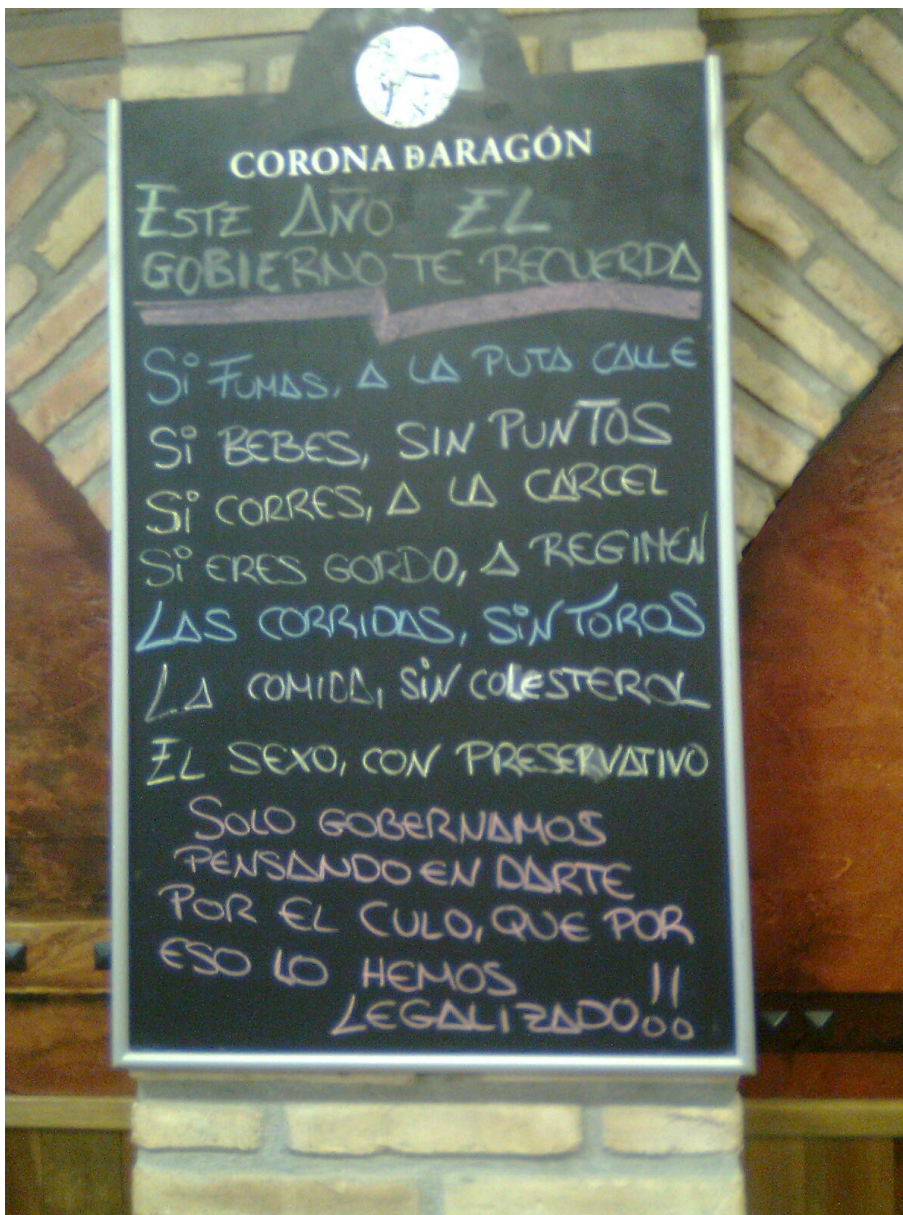 CORONA DARAGÓN
ESTE AÑO EL
GOBIERNO TE RECUERDA
Si FUMAS, A LA PUTA CALLE
Si BEBES, SIN PUNTOS
Si CORRES, A LA CARCEL
Si ERES GORDO, A REGIMEN
LAS CORRIDAS, SiN TOROS
LA COMIDA, SiN COLESTEROL
EL SEXO, CON PRESERVATIVO
SOLO GOBERNAMOS
PENSANDO EN DARTE
POR EL CULO, QUE POR
ESO LO HEMOS
LEGALIZADO!!